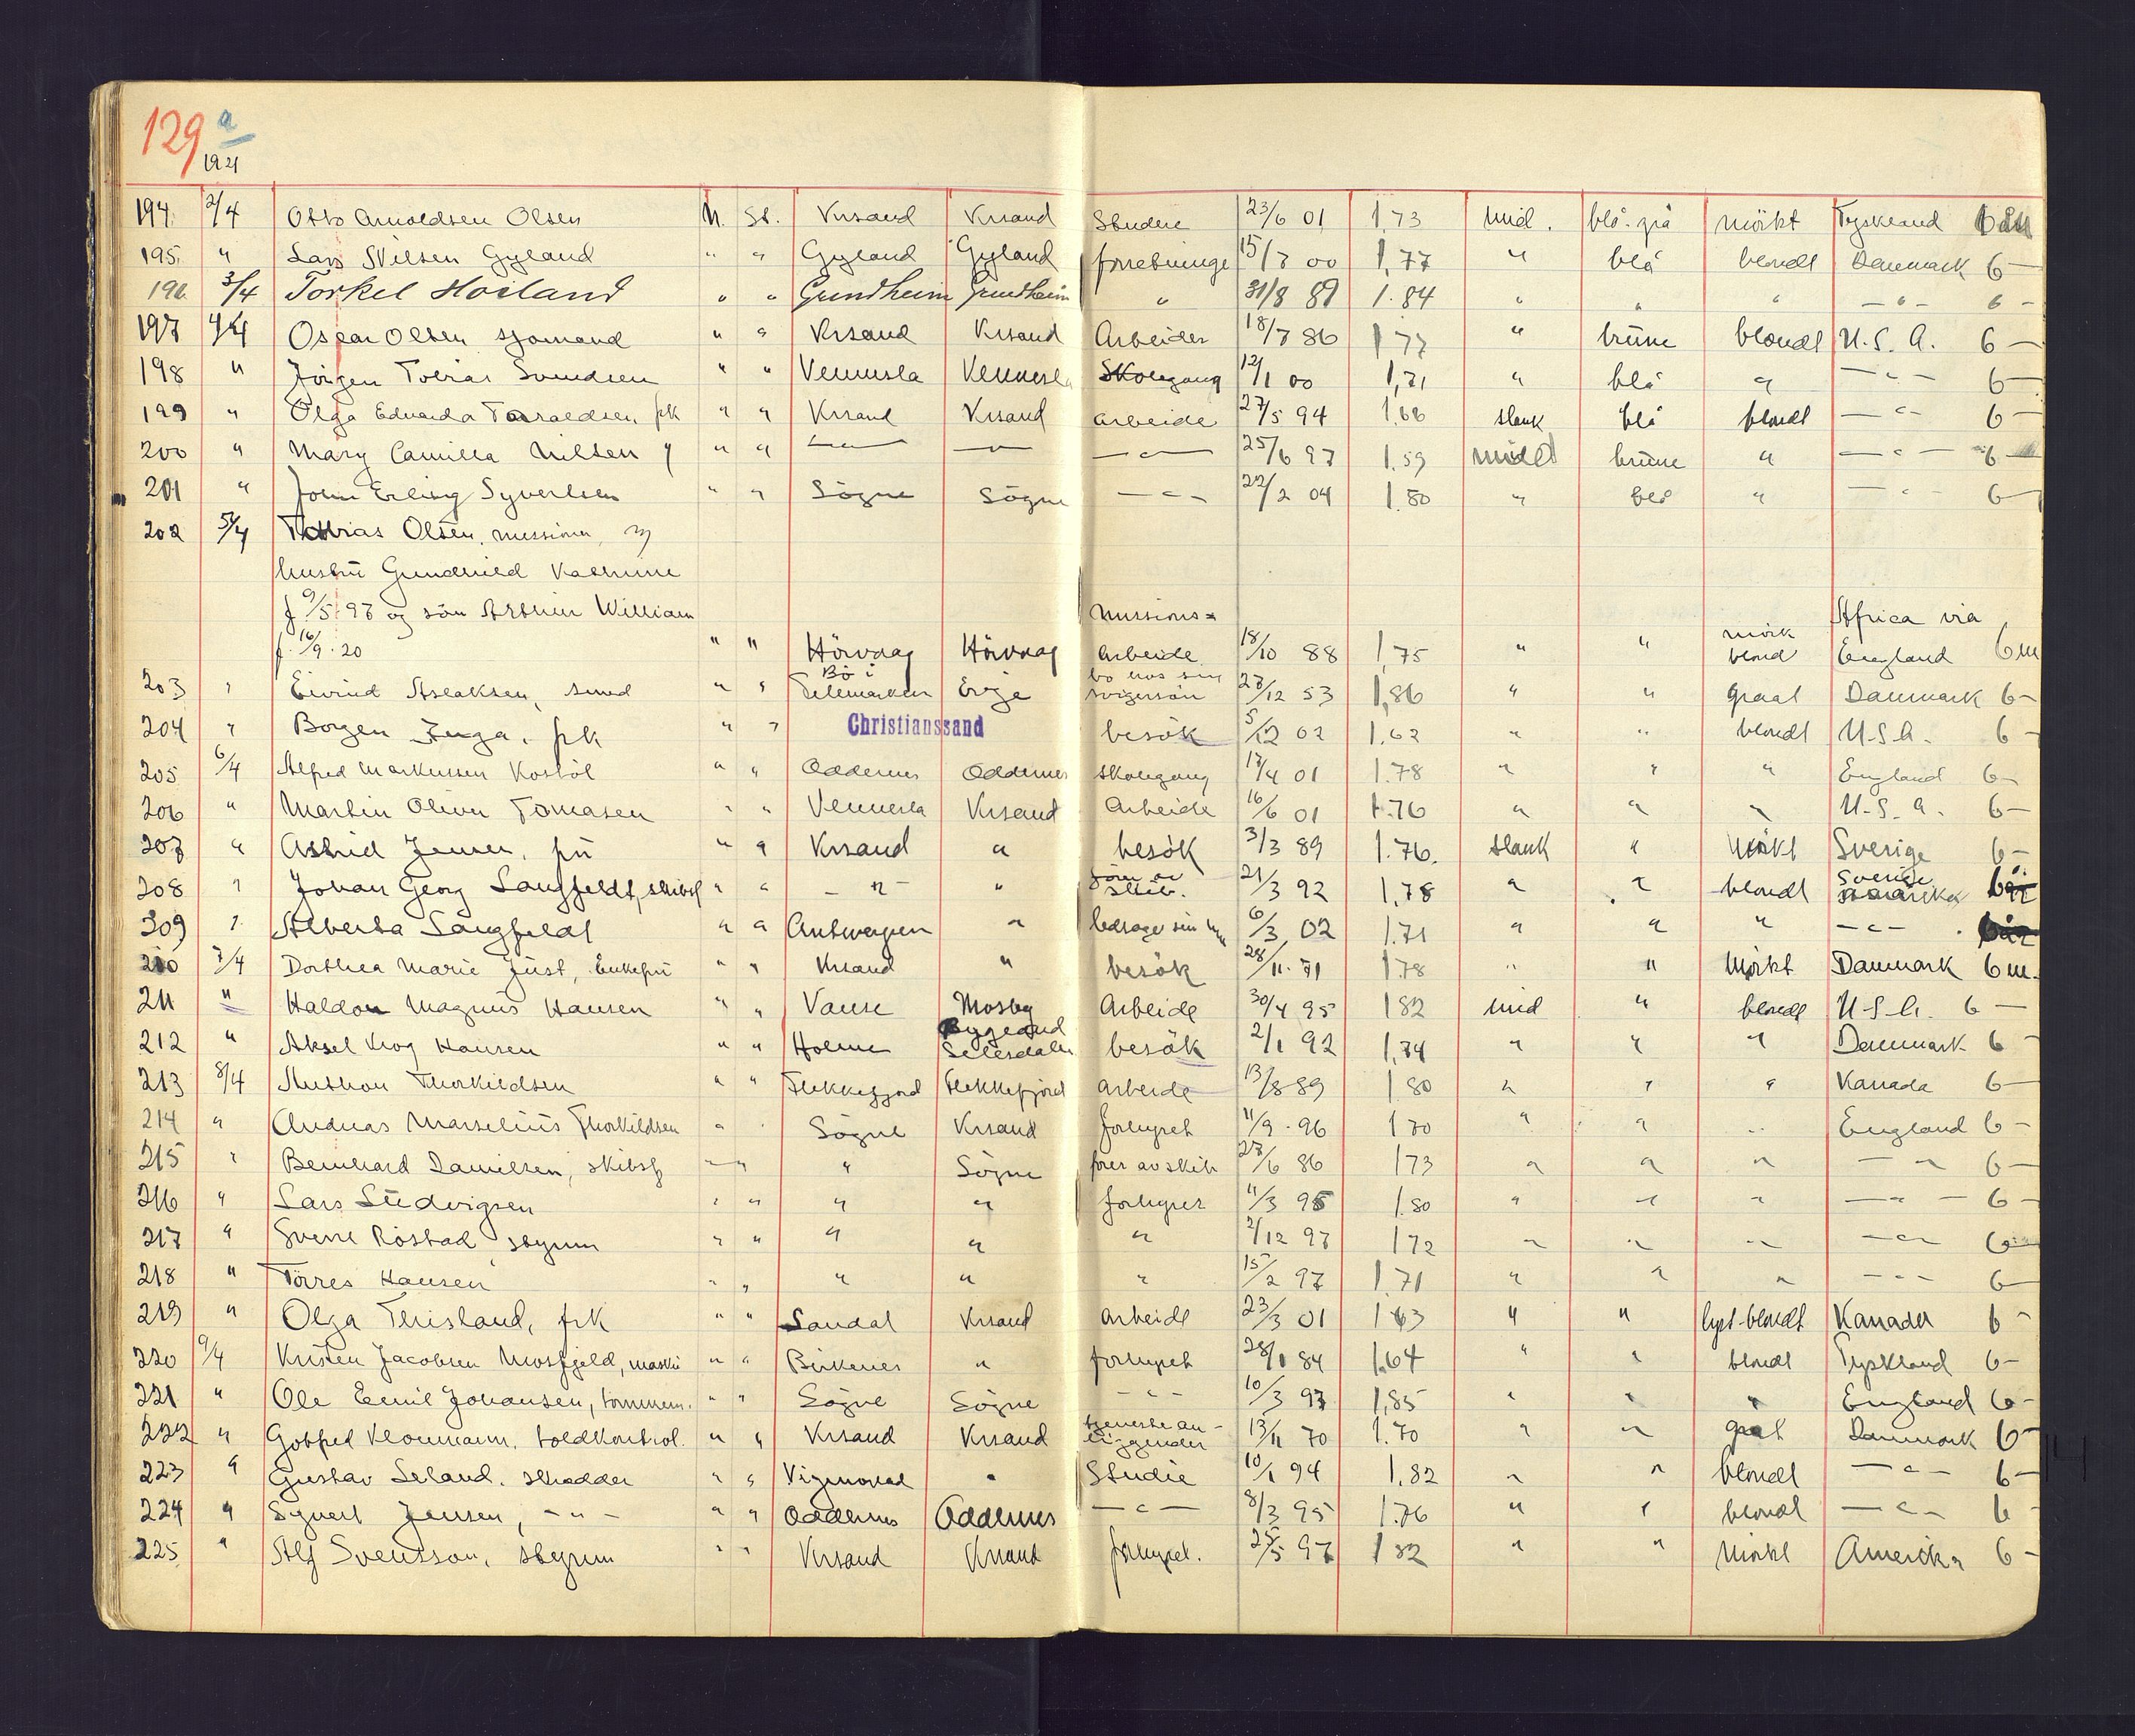 129 a
1921
194. 2/4 Otto Arnoldsen Olsen N. St. Krsand Krsand Studere 23/6 01 1,73 mid. blå-grå mörkt Tyskland 6 år
195. " Lars Nilsen Gyland " " Gyland Gyland forretninge 15/7 00 1,77 " blå blondt Danmark 6 —
196 3/4 Torkel Hoiland " " Grindheim Grindheim " 31/8 89 1.84 " " " — " — 6 —
197 4/4 Oscar Olsen sjömand " " Krsand Krsand Arbeider 18/7 86 1 77 " brune blondt U.S.A. 6 —
198 " Jörgen Tobias Svendsen " " Vennesla Vennesla Skolegang 12/1 00 1,71 " blå " — " — 6 —
199 " Olga Edvarda Taraldsen, frk " " Krsand Krsand arbeide 27/5 94 1.68 slank blå blondt — " — 6 —
200 " Mary Camilla Nilsen " " " — " — — — " — 25/6 97 1.59 midlt brune " — " — 6 —
201 " John Erling Syvertsen " " Sögne Sögne — " — 22/2 04 1.80 " blå " — " — 6 —
202 5/4 Tobias Olsen, missionær, og
hustru Gundhild Kathrine
f 9/5 97 og sön Arthur William
f. 16/9.20 " " Hövaag Hövaag Missions= Arbeide 18/10 88 1,75 " " mörk blond Africa via England 6 m
203 " Eivind Aslaksen, smed " " Bö i Telemarken Evje bo hos sin svigersön 27/12 53 1,86 " " graat Danmark 6 —
204 " Borgen Inga, frk " " Christianssand besök 5/12 02 1.62 " " blondt U.S.A. 6 —
205 6/4 Alfred Markussen Kostöl " " Oddernes Oddernes skolegang 17/4 01 1.78 " " " England 6 —
206 " Martin Oliver Tomasen " " Vennesla Krsand Arbeide 16/6 01 1.76 " " " U.S.A. 6 —
207 " Astrid Jensen, fru " " Krsand " besök 3/3 89 1.76. slank " mörkt Sverige 6 —
208 " Johan Georg Langfeldt, skibsf " " — " — " skib. 21/3 92 1,78 " " blondt Sverige
209 " Alberta Langfeldt " " Antwerpen " ledsager sin 6/3 02 1.71 " " " — " —
210 7/4 Dorthea Marie Just, Enkefru " " Krsand " besök 28/11.71 1.78 " " Mörkt Danmark 6 m.
211 " Haldor Magnus Hansen " " Vanse Mosby Arbeide 30/4 95 1 82 mid " blondt U.S.A. 6 —
212 " Aksel Krog Hansen " " Holme Bygland Setesdalen besök 2/1 92 1,74 " " " Danmark 6 —
213 8/4 Anthon Thorkildsen " " Flekkefjord Flekkefjord arbeide 13/8 89 1 80 " " " Kanada 6 —
214 " Andreas Marselius Thorkildsen " " Sögne Krsand forhyret 11/9.96 1 70 " " " England 6 —
215 " Bernhard Danielsen, skibsf " " " Sögne förer av skib 27/6 86 1 73 " " " — " 6 —
216 " Lars Ludvigsen " " " " forhyres 11/3 95 1.80 " " " — " — 6 —
217 " Sverre Röstad styrm " " " " " 2/12 97 1 72 " " " — " — 6 —
218 " Törres Hansen " " " " " 15/2 97 1.71 " " " — " — 6 —
219 " Olga Thisland, frk " " Sandal Krsand Arbeide 23/3 01 1 63 " " lyst-blondt Kanada 6 —
220 9/4 Kristen Jacobsen Mosfjeld, maski " " Birkenes " forhyret 28/1 84 1.64 " " blondt Tyskland 6 —
221 " Ole Emil Johansen, tömmerm. " " Sögne Sögne — " — 10/3 97 1,85 " " " England 6 —
222 " Gotfred Kloumann, toldkontrol. " " Krsand Krsand tjeneste an- liggender 13/11 70 1.70 " " gråt Danmark 6 —
223 " Gustav Seland. skrædder " " Vigmostad " Studie 10/1 94 1.82 " " blondt — " — 6 —
224 " Syvert Jensen, — " — " " Oddernes Oddernes — " — 8/3 95 1.76 " " blondt — " — 6
225 " Alf Svensson, styrm " " Krsand Krsand forhyret. 25/5 97 1 82 " " Mörkt Amerika 6 —